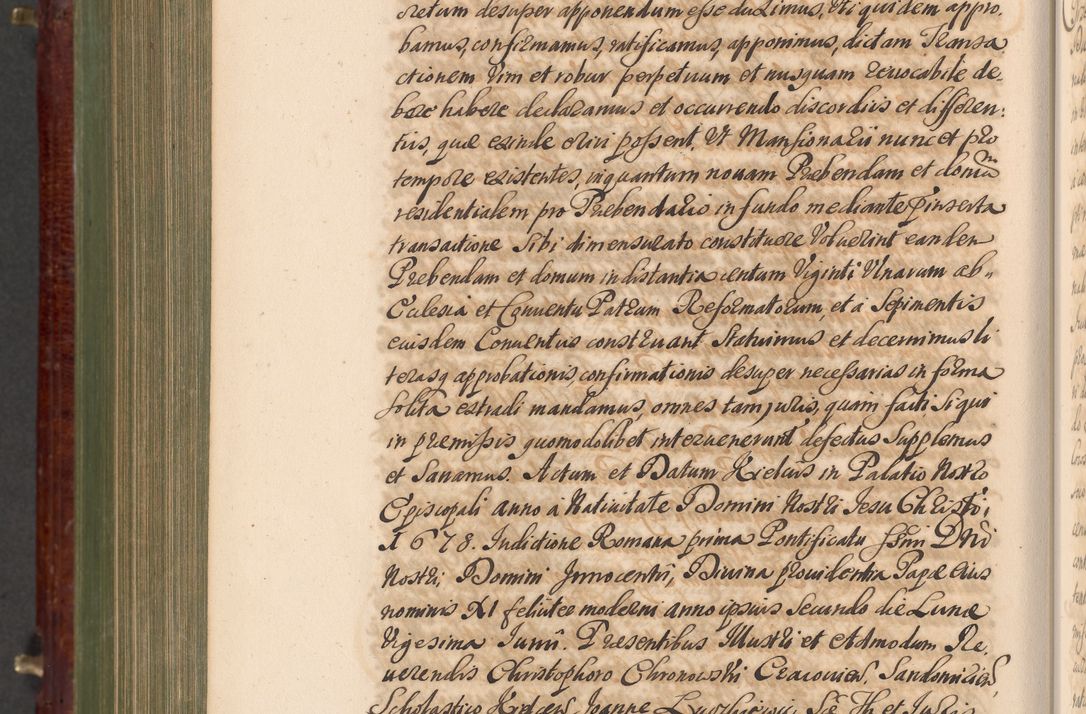 cretum desuper apponendum esse duximus, uti quidem appro,
bamus, confirmamus, ratificamus, apponimus, dictam Transa
ctionem Vim et robur perpetuum et nusquam reuocabile de„
bere habere declaramus et occurrendo discordiis et differen:
tiis, quæ exinde oriri possent, Vt Mansionarii nunc et pro
tempore existentes, inquantum nouam Prebendam et domũ
residentialem pro Prebendario in fundo mediante p̃inserta
transactione Sibi dimensurato constituere Voluerint eanden
Prebendam et domum in distantia centum Viginti Vlnarum ab„
Ecclesia et Conuentu Patrum Reformatorum, et a Sepimentis
euisdem Conuentus construant Statuimus et decernimus li
terasq approbationis, confirmationis desuper necessarias in forma
solita extradi mandamus, omnes tam juris, quam facti, Si qui
in premissis quomodolibet interuenerunt defectus Supplemus
et Sanamus. Actum et Datum Kielciis in Palatio Nostro
Episcopali anno a Natiuitate Domini Nostri Jesu Christi,
1678. Indictione Romana prima Pontificatu Ssmi Dni
Nostri, Domini Innocentii, Diuina prouidentia Papæ eius
nominis XI feliciter moderni anno ipsius Secundo die Lunæ
Vigesima Junii. Præsentibus Illustri et Admodum Re,
uerendis Christophoro Chronowski Cracouien, Sandomirien,
Scholastico Kielcen, Joanne